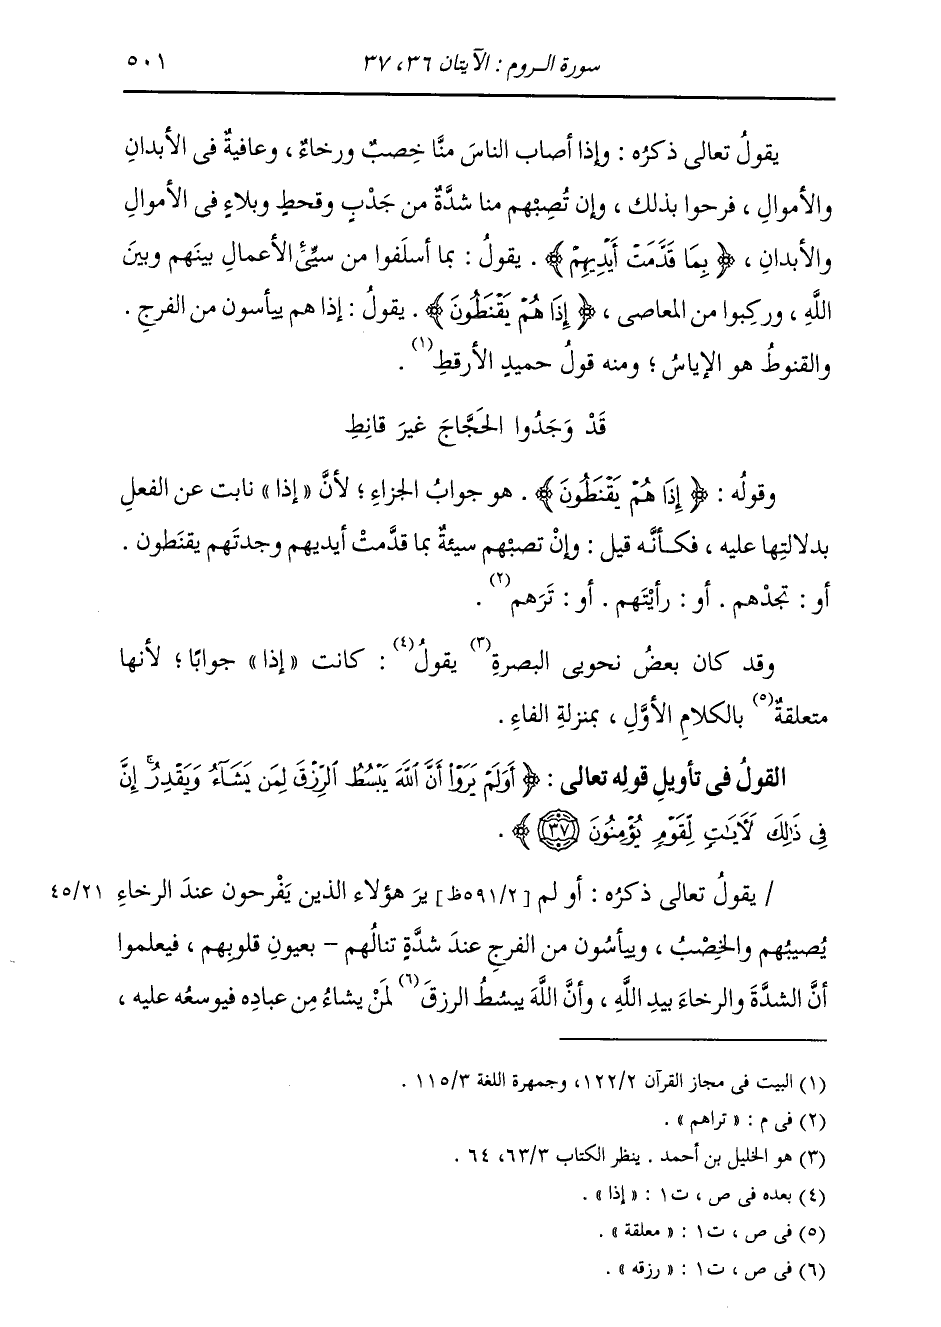 سورة الـروم : الآيتان ٣٦، ٣٧ ٥٠١
يقولُ تعالى ذكرُه : وإذا أصاب الناسَ منَّا خِصبٌ ورخاءٌ ، وعافيةٌ فى الأبدانِ
والأموالِ ، فرحوا بذلك ، وإن تُصِبْهم منا شدَّةٌ من جَدْبٍ وقحطٍ وبلاءٍ فى الأموالِ
والأبدانِ ، ﴿ بِمَا قَدَّمَتْ أَيْدِيهِمْ ﴾ . يقولُ : بما أسلَفوا من سيِّئِ الأعمالِ بينَهم وبينَ
اللَّهِ ، وركِبوا من المعاصى ، ﴿ إِذَا هُمْ يَقْنَطُونَ ﴾ . يقولُ : إذا هم ييأسون من الفرجِ .
والقنوطُ هو الإياسُ ؛ ومنه قولُ حميدٍ الأرقطِ(١) .
قَدْ وَجَدُوا الحَجَّاجَ غيرَ قانِطِ
وقولُه : ﴿ إِذَا هُمْ يَقْنَطُونَ ﴾ . هو جوابُ الجزاءِ ؛ لأنَّ « إذا » نابت عن الفعلِ
بدلالتِها عليه ، فكـأنَّـه قيل : وإنْ تصبْهم سيئةٌ بما قدَّمتْ أيديهم وجدتَهم يقنَطون .
أو : تجدْهم . أو : رأيْتَهم . أو : تَرَهم(٢) .
وقد كان بعضُ نحويى البصرةِ(٣) يقولُ(٤) : كانت « إذا » جوابًا ؛ لأنها
متعلقةٌ(٥) بالكلامِ الأوَّلِ ، بمنزلةِ الفاءِ .
القولُ فى تأويلِ قولِه تعالى : ﴿ أَوَلَمْ يَرَوْا أَنَّ ٱللَّهَ يَبْسُطُ ٱلرِّزْقَ لِمَن يَشَآءُ وَيَقْدِرُۚ إِنَّ
فِى ذَٰلِكَ لَآيَـٰتٍ لِّقَوْمٍ يُؤْمِنُونَ ٣٧ ﴾ .
/ يقولُ تعالى ذكرُه : أو لم [٥٩١/٢ظ] يرَ هؤلاء الذين يَفْرحون عندَ الرخاءِ ٤٥/٢١
يُصيبُهم والخِصْبُ ، وييأسُون من الفرجِ عندَ شدَّةٍ تنالُهم – بعيونِ قلوبِهم ، فيعلموا
أنَّ الشدَّةَ والرخاءَ بيدِ اللَّهِ ، وأنَّ اللَّهَ يبسُطُ الرزقَ(٦) لمَنْ يشاءُ مِن عبادِه فيوسعُه عليه ،
(١) البيت فى مجاز القرآن ١٢٢/٢، وجمهرة اللغة ١١٥/٣ .
(٢) فى م : « تراهم » .
(٣) هو الخليل بن أحمد . ينظر الكتاب ٦٣/٣، ٦٤ .
(٤) بعده فى ص ، ت١ : « إذا » .
(٥) فى ص ، ت١ : « معلقة » .
(٦) فى ص ، ت١ : « رزقه » .